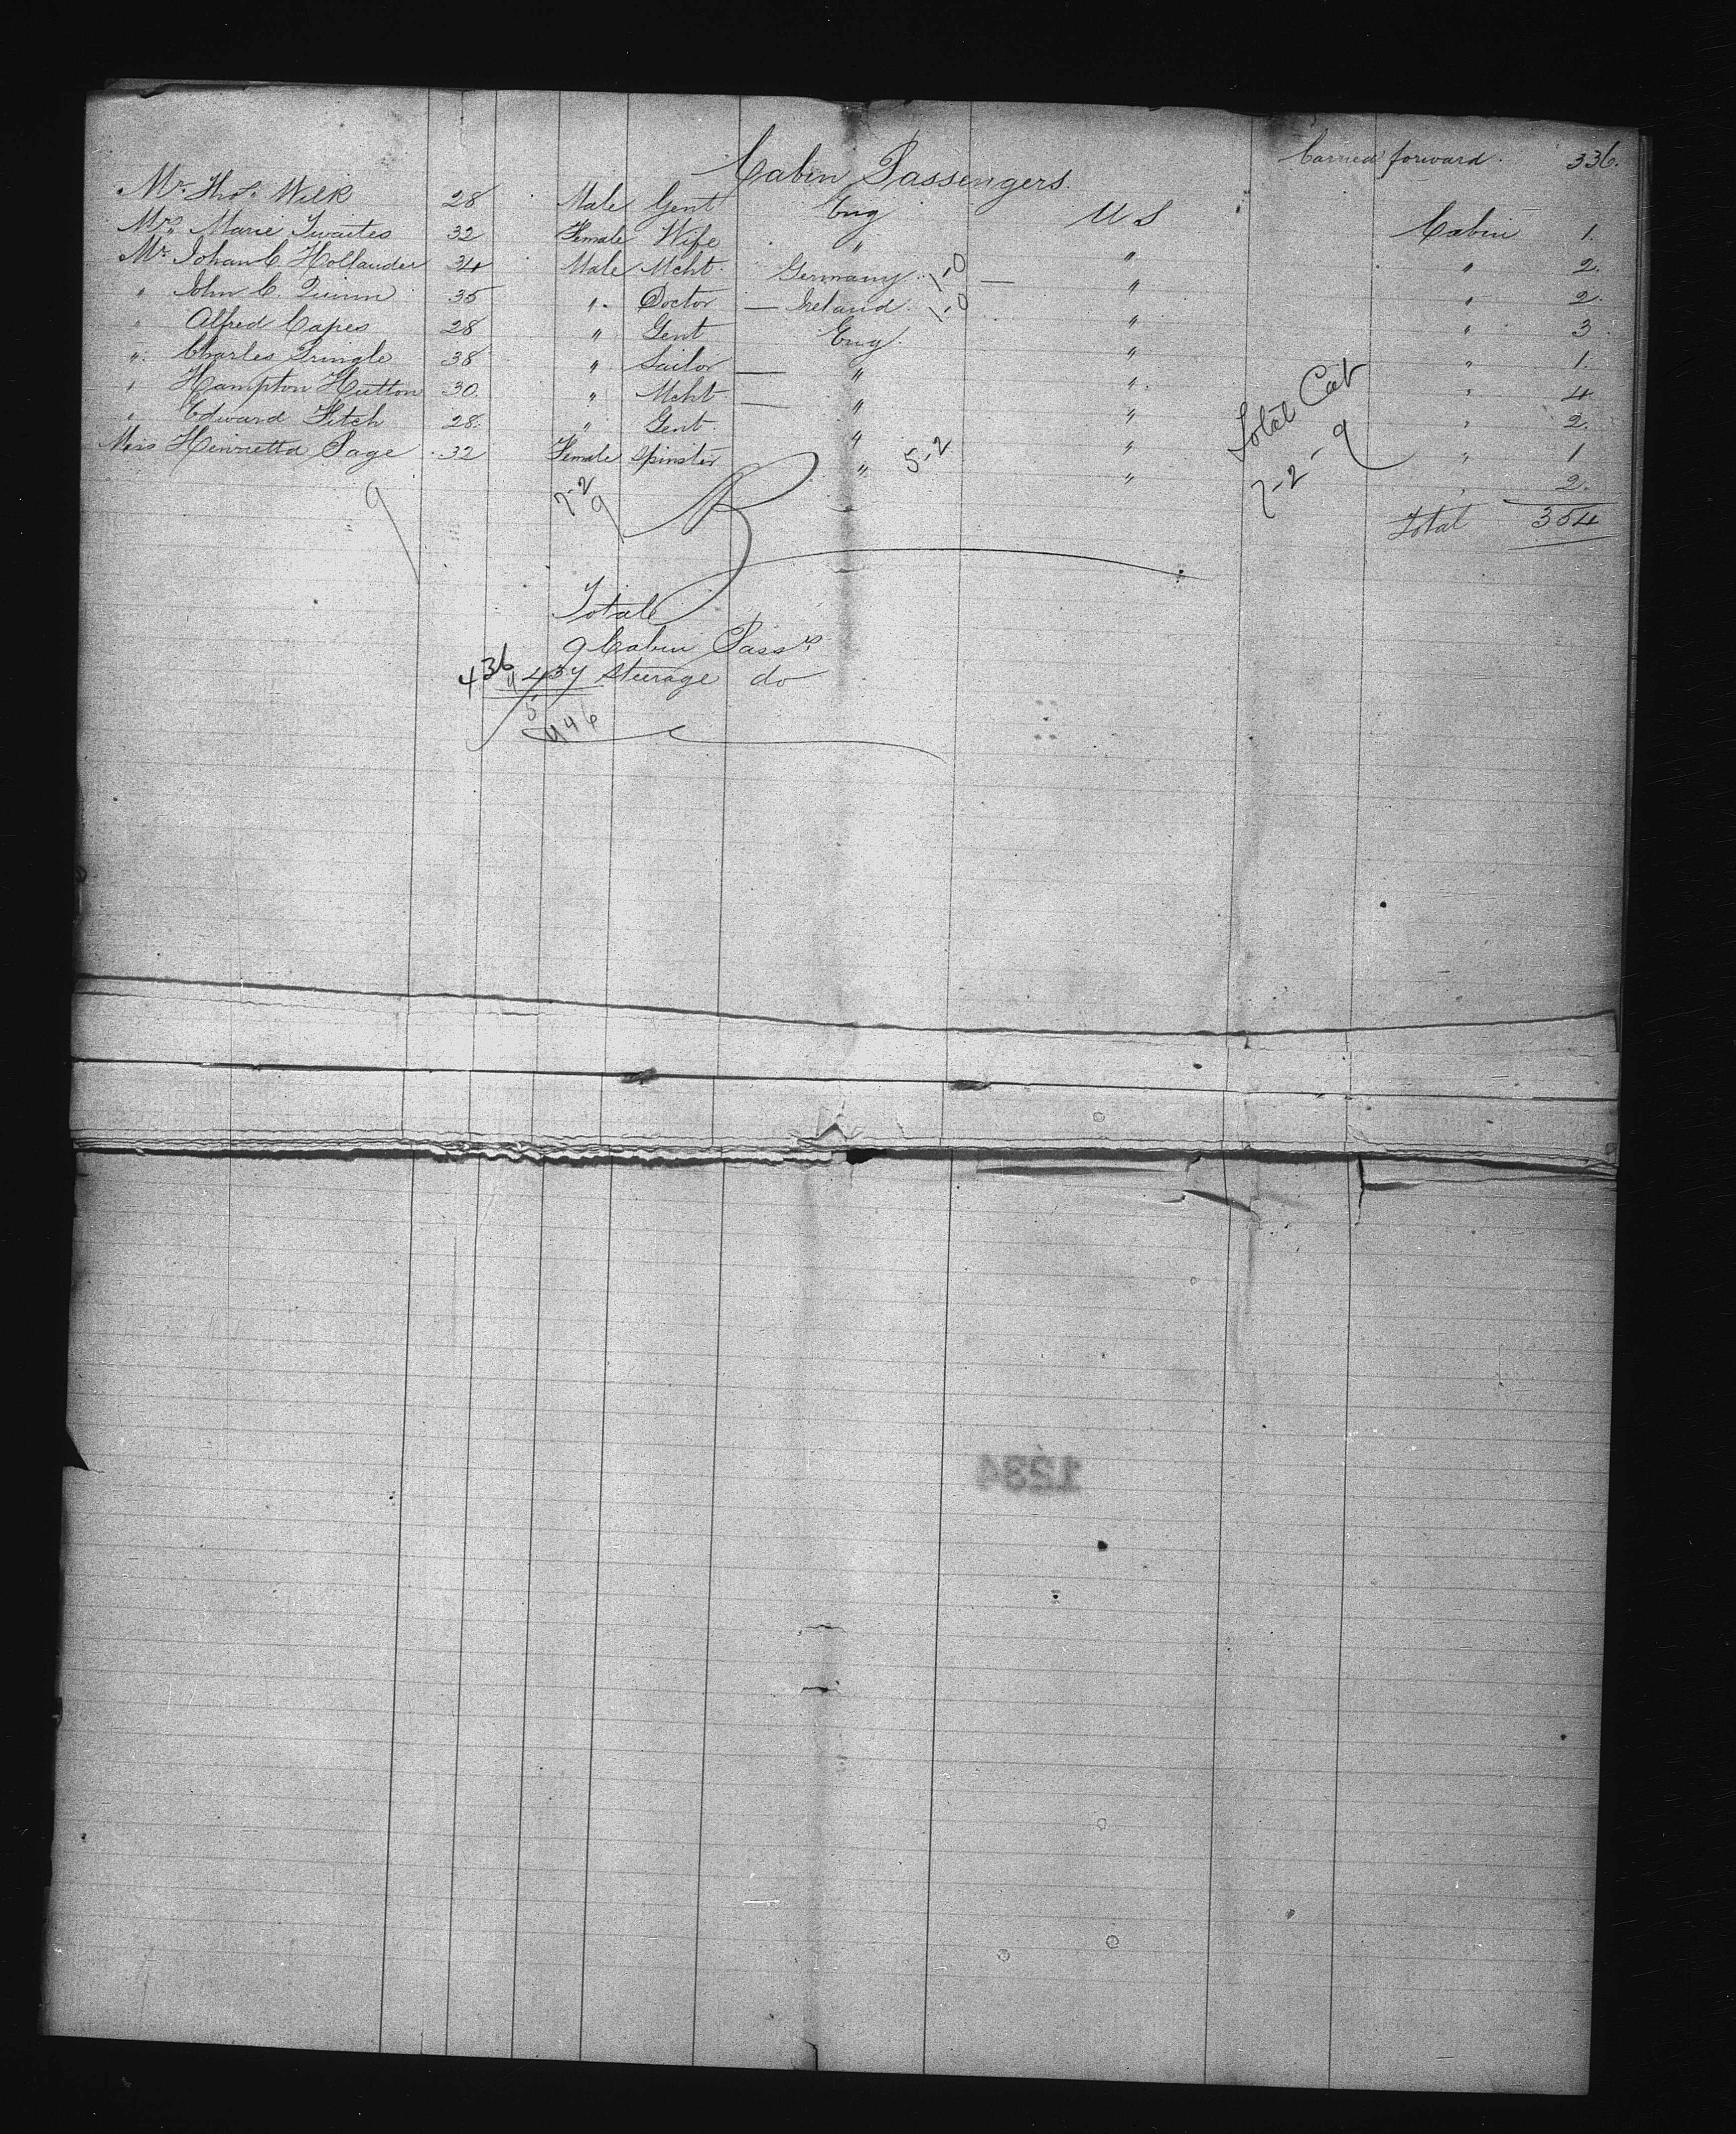 Carried forward. 336.
Cabin Passengers.
Mr. Thos. Wilk 28 Male Gent Eng U S Cabin 1.
Mrs. Marie Twaites 32 Female Wife " " " 2.
Mr. Johan C. Hollander 34 Male Mcht. Germany 1-0 — " " 2.
" John C. Quinn 35 " Doctor — Ireland 1-0 " " 3
" Alfred Capes 28 " Gent Eng. " " 1.
" Charles Pringle 38 " Sailor — " " " 4
" Hampton Hutton 30. " Mcht — " " " 2.
" Edward Fitch 28. " Gent. " " " 1
Miss Henrietta Page 32 Female Spinster " 5-2 " " 2.
Total Cab
7-2-9
9 7-2 9
Total 354
Total
9 Cabin Passrs
436 437 Steerage do
446
1234